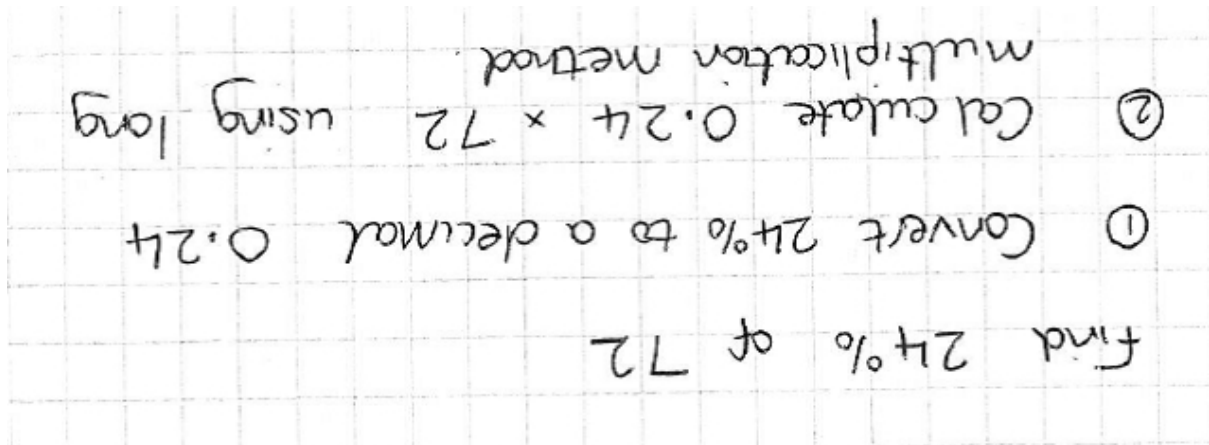 Find 24% of 72
① Convert 24% to a decimal 0.24
② Calculate 0.24 × 72 using long
multiplication method.